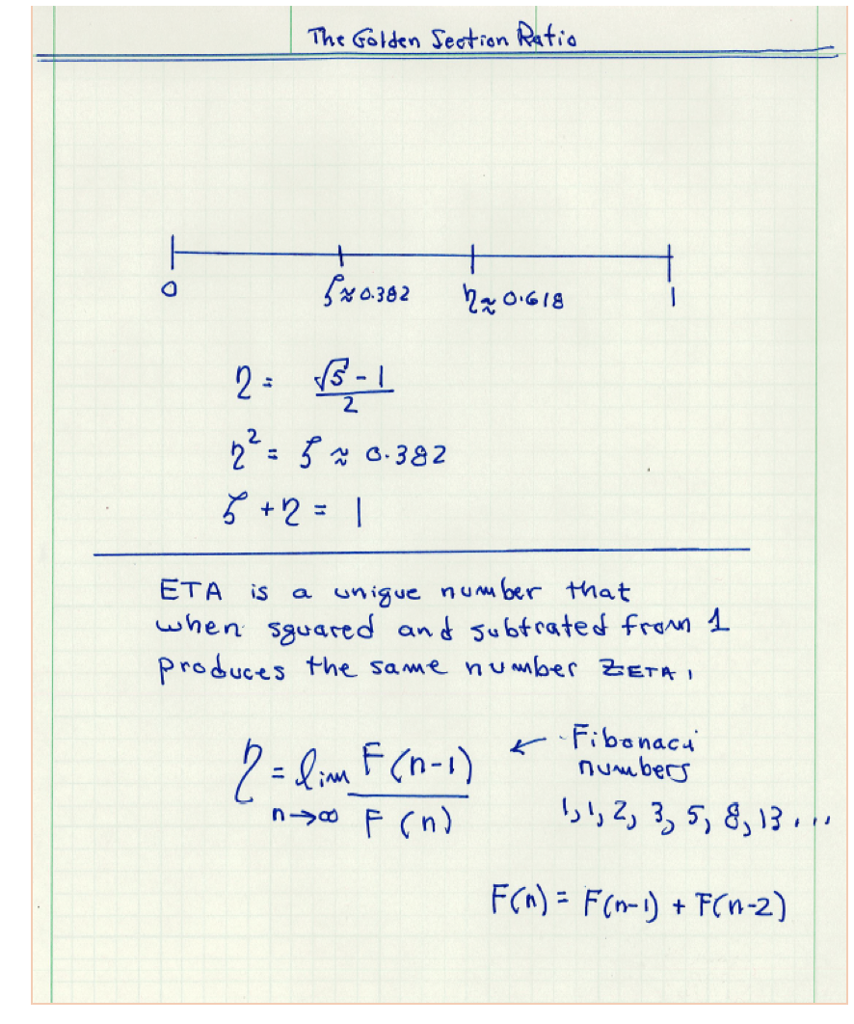 The Golden Section Ratio
0 ζ≈0.382 η≈0.618 1
η = √5 - 1 / 2
η² = ζ ≈ 0.382
ζ + η = 1
ETA is a unique number that
when squared and subtrated from 1
produces the same number ZETA.
η = lim F(n-1) / F(n)
n→∞
← Fibonaci
numbers
1, 1, 2, 3, 5, 8, 13 ...
F(n) = F(n-1) + F(n-2)